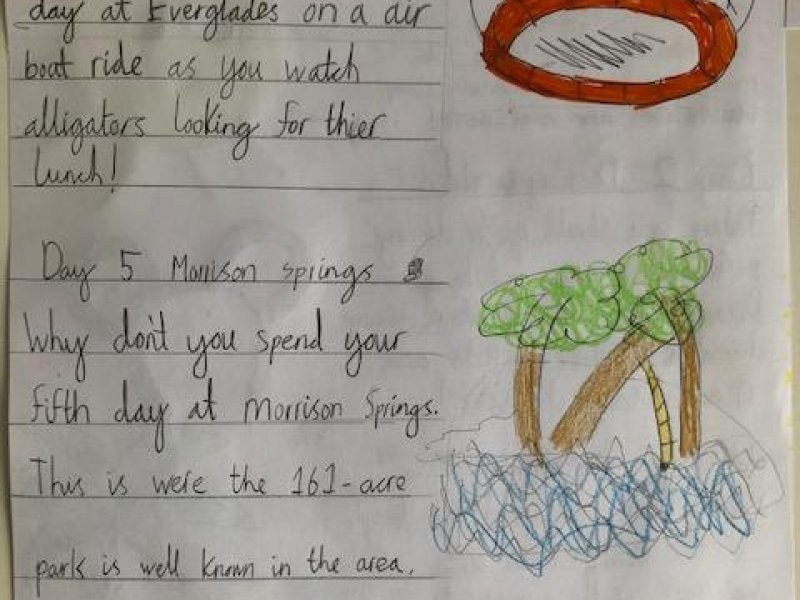 day at Everglades on a air
boat ride as you watch
alligators looking for thier
lunch!
Day 5 Morrison springs
Why don't you spend your
fifth day at Morrison Springs.
This is were the 161-acre
park is well known in the area.